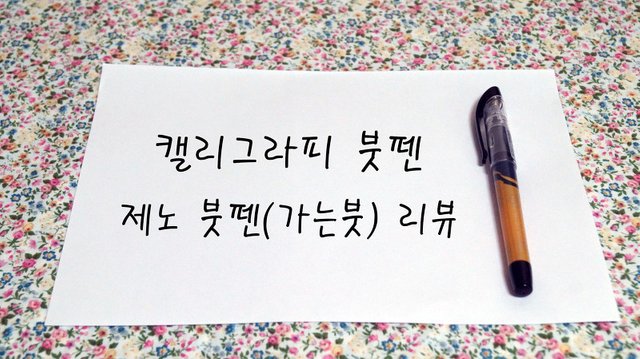 캘리그라피 붓펜
제노 붓펜(가는붓) 리뷰